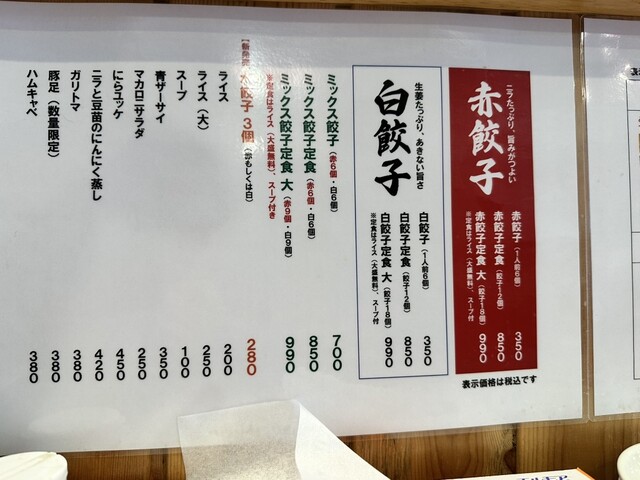 赤餃子
ニラたっぷり、旨みがつよい
赤餃子(1人前6個) 350
赤餃子定食(餃子12個) 850
赤餃子定食 大(餃子18個) 990
※定食はライス(大盛無料)、スープ付
白餃子
生姜たっぷり、あきない旨さ
白餃子(1人前6個) 350
白餃子定食(餃子12個) 850
白餃子定食 大(餃子18個) 990
※定食はライス(大盛無料)、スープ付
ミックス餃子(赤6個・白6個) 700
ミックス餃子定食(赤6個・白6個) 850
ミックス餃子定食 大(赤9個・白9個) 990
※定食はライス(大盛無料)、スープ付き
餃子 3個(赤もしくは白) 280
ライス 200
ライス(大) 250
スープ 100
青ザーサイ 350
マカロニサラダ 250
にらユッケ 450
ニラと豆苗のにんにく蒸し 420
ガリトマ 380
豚足(数量限定) 380
ハムキャベ 380
表示価格は税込です